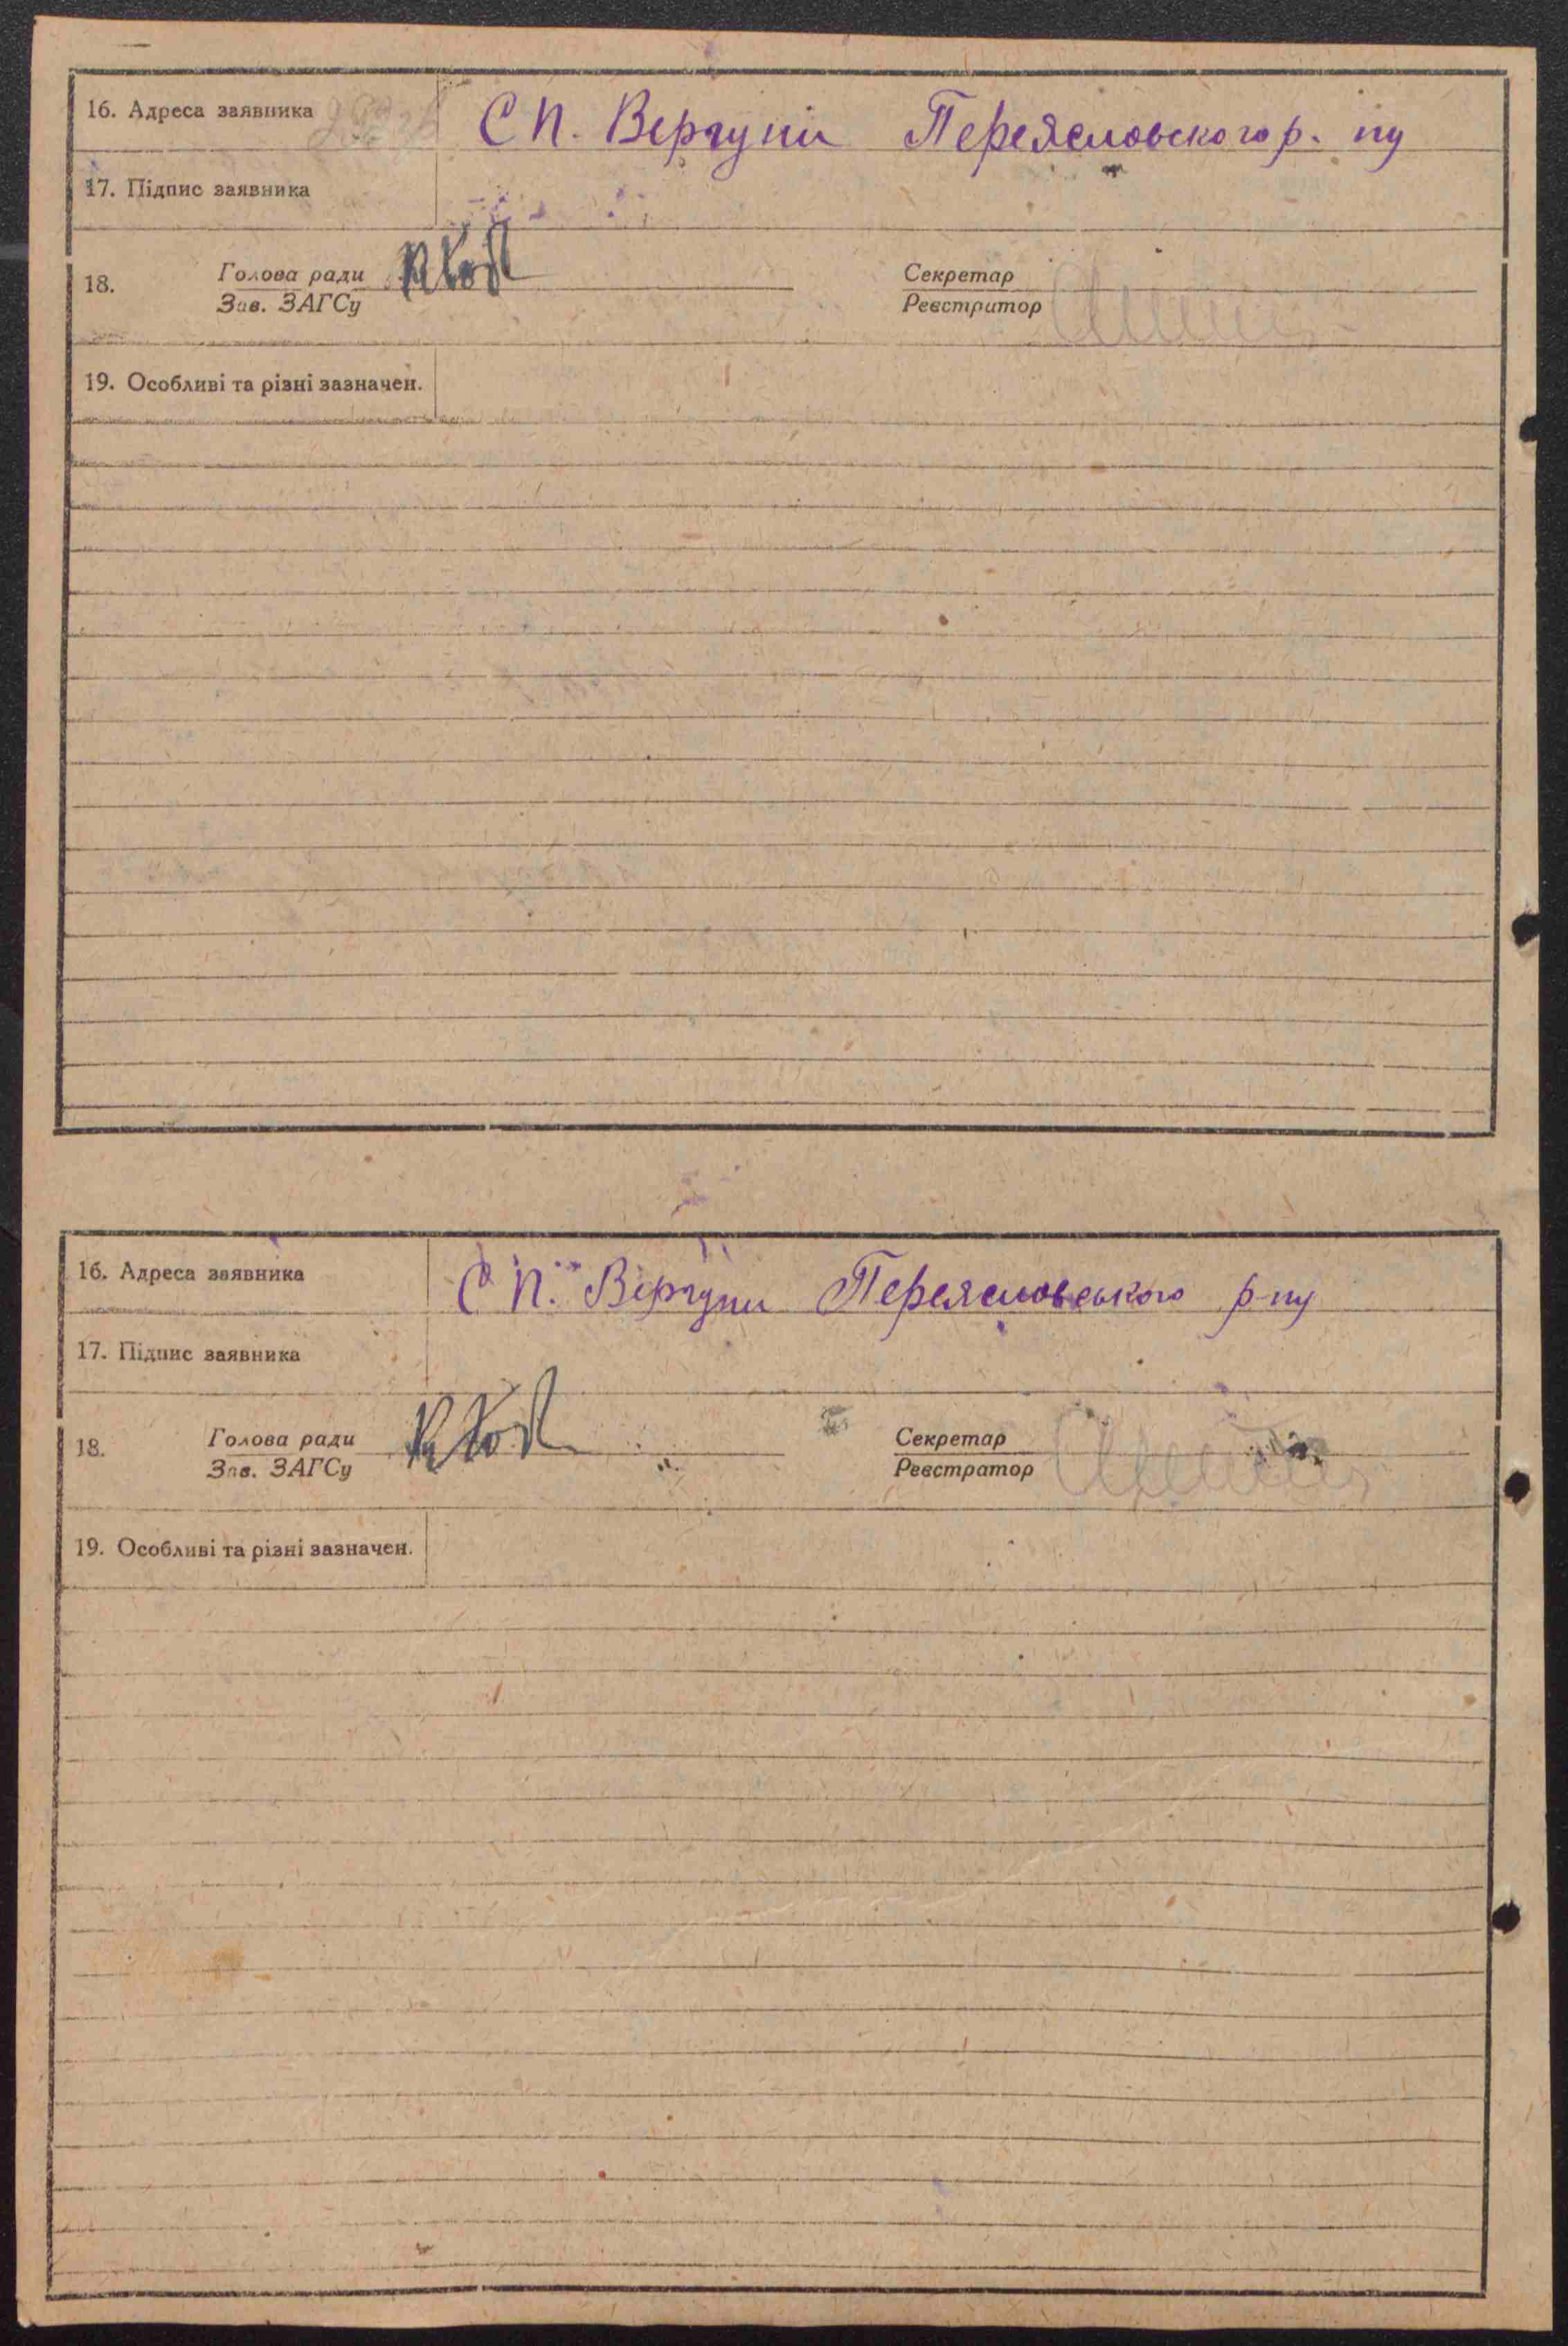 16. Адреса заявника С п. Вергуни Переяслоовского р. ну
17. Підпис заявника
18. Голова ради Секретар
Зав. ЗАГСу Реєстратор
19. Особливі та різні зазначен.
16. Адреса заявника С п. Вергуни Переясловського р-ну
17. Підпис заявника
18. Голова ради Секретар
Зав. ЗАГСу Реєстратор
19. Особливі та різні зазначен.